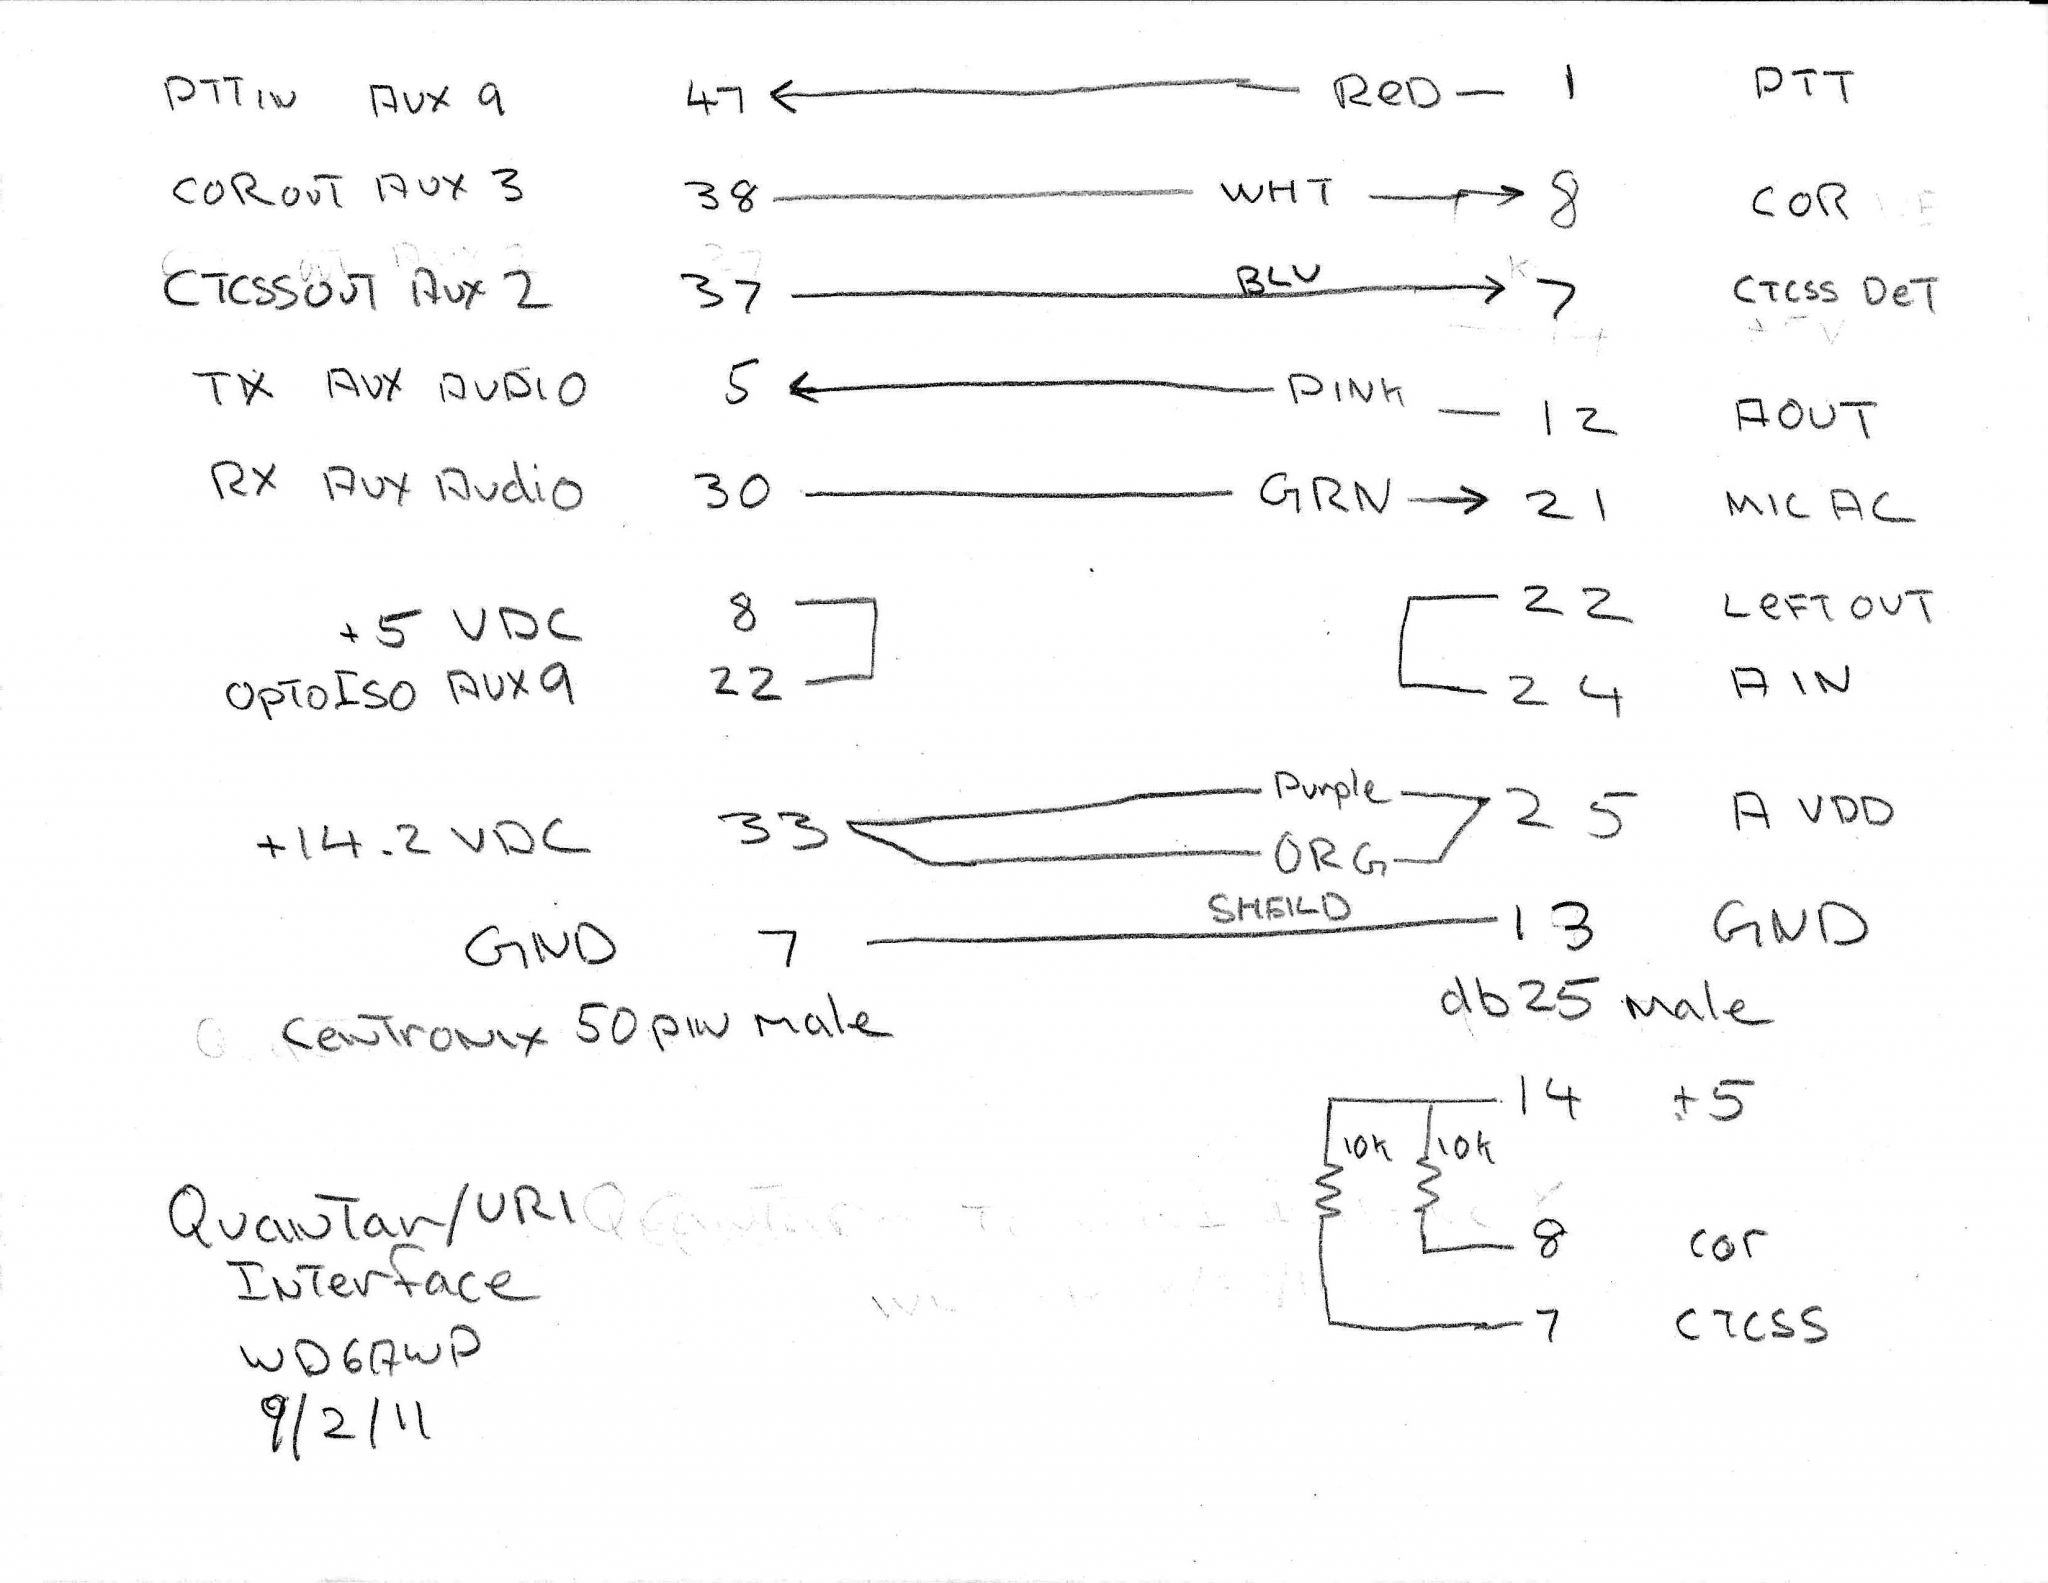 PTT IN AUX 9 47 RED 1 PTT
COR OUT AUX 3 38 WHT 8 COR
CTCSS OUT AUX 2 37 BLU 7 CTCSS DET
TX AUX AUDIO 5 PINK 12 AOUT
RX AUX Audio 30 GRN 21 MIC AC
+5 VDC 8 22 LEFT OUT
OPTOISO AUX 9 22 24 A IN
+14.2 VDC 33 Purple 25 A VDD
ORG
GND 7 SHEILD 13 GND
Centronix 50 pin male db25 male
14 +5
10k 10k
8 cor
7 CTCSS
Quantar/URI
Interface
WD6AWP
9/2/11